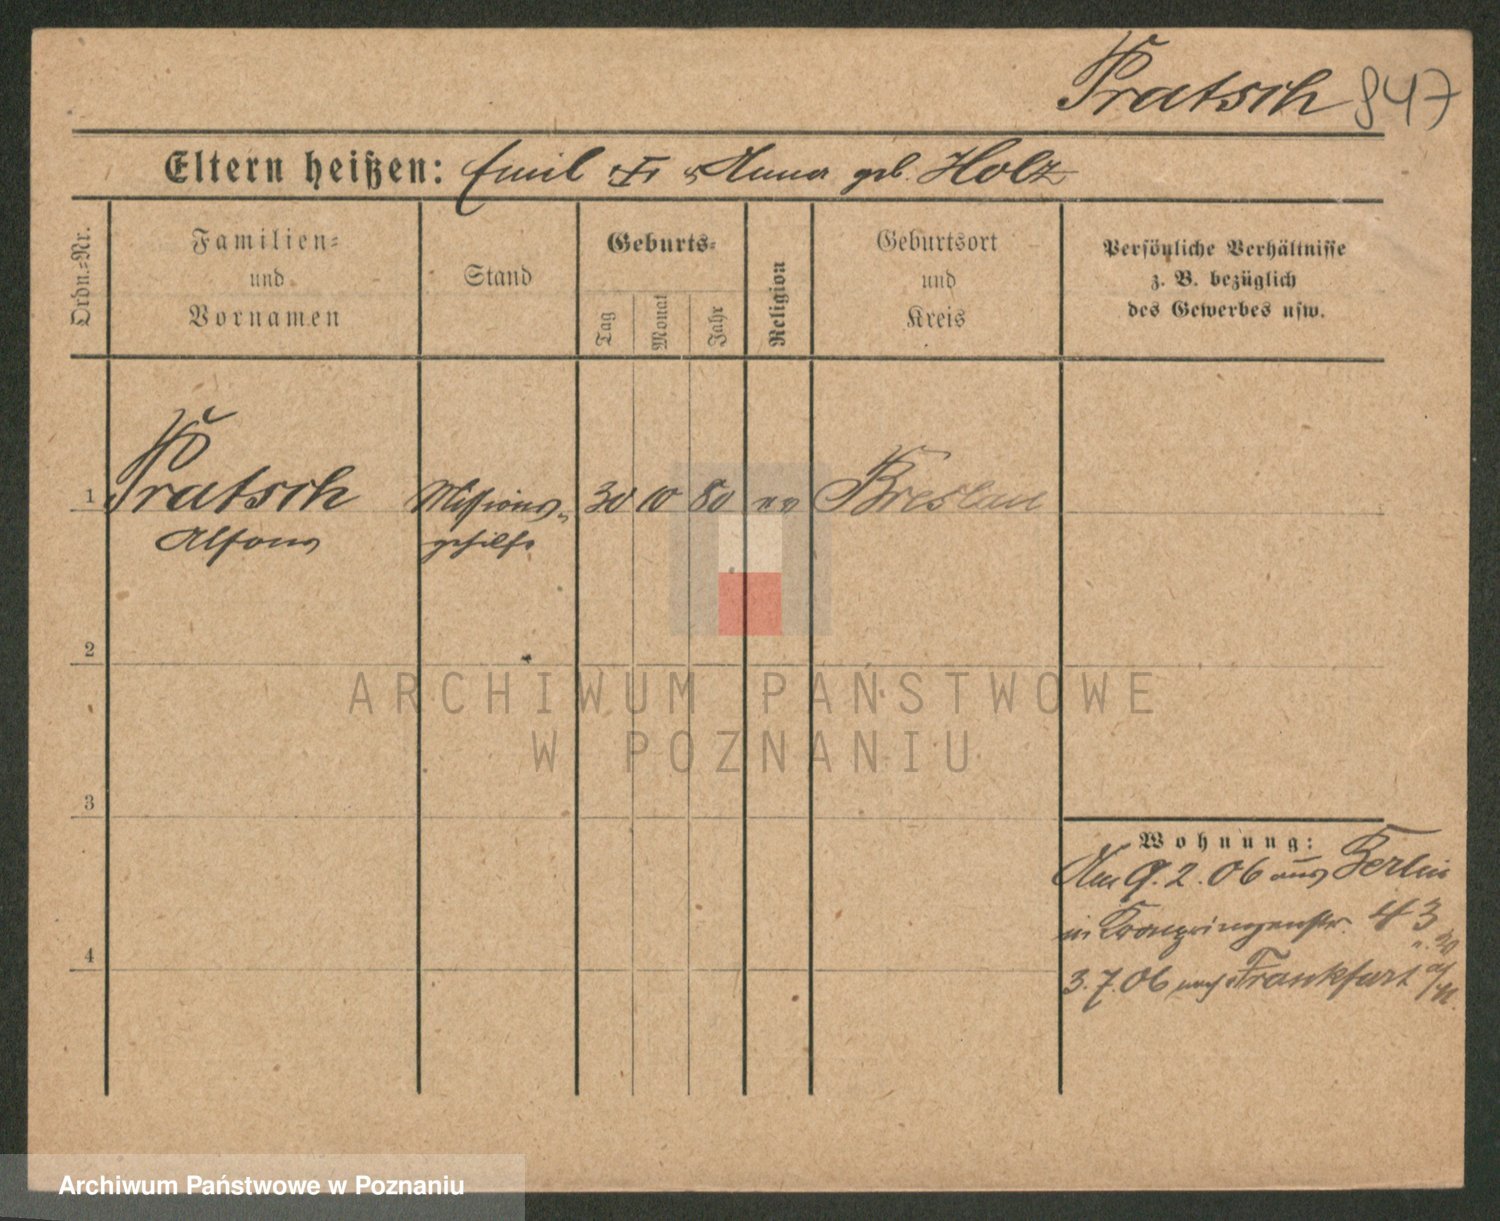 Pratsch 847
Eltern heißen: Emil u Anna geb. Holz
Ordn.-Nr.
Familien-
und
Vornamen
Stand
Geburts-
Tag
Monat
Jahr
Religion
Geburtsort
und
Kreis
Persönliche Verhältnisse
z. B. bezüglich
des Gewerbes usw.
1 Pratsch Missions- 30 10 80 ev Breslau
Alfons gehilfe
2
3
4
Wohnung:
Am 9.2.06 aus Berlin
in Kronprinzenstr. 43
3.7.06 nach Frankfurt a/M.
ARCHIWUM PAŃSTWOWE
W POZNANIU
Archiwum Państwowe w Poznaniu